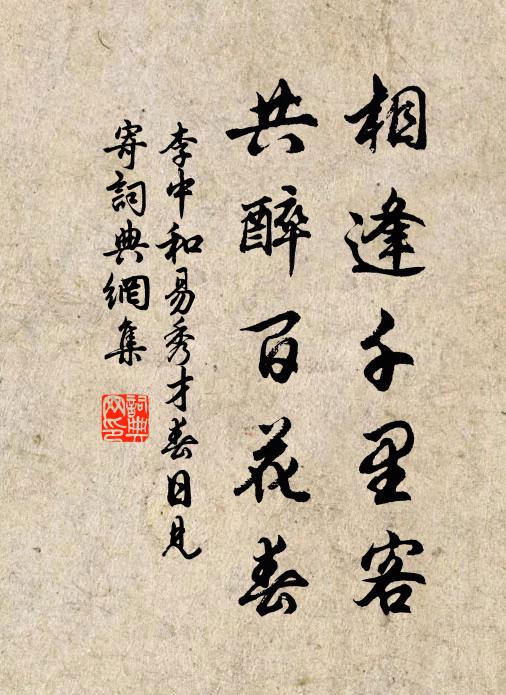 相逢千里客
共醉百花春
李中和易秀才春日見
寄詞典網集
詞典網印